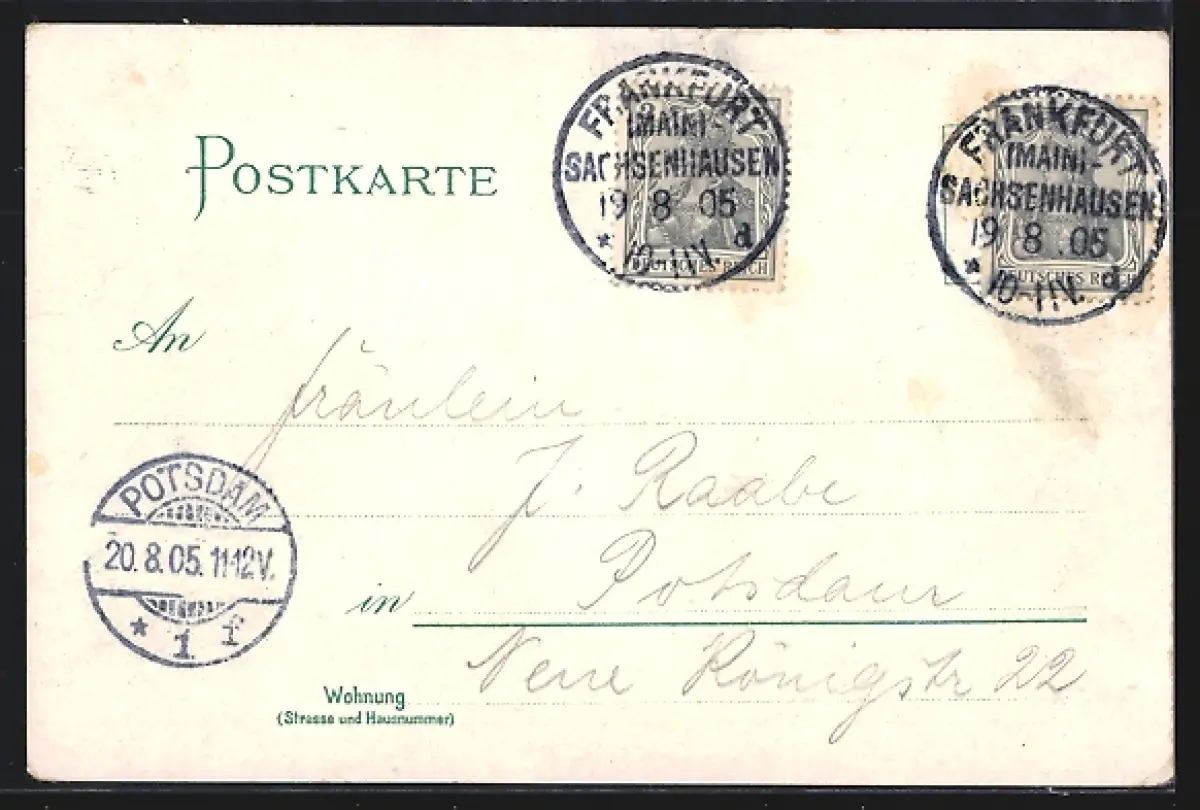 POSTKARTE
FRANKFURT
(MAIN) -
SACHSENHAUSEN
19 8 05
* 10-11V. d
DEUTSCHES REICH
FRANKFURT
(MAIN) -
SACHSENHAUSEN
19 8 .05
* 10-11V. d
DEUTSCHES REICH
An
Fräulein
J. Raabe
POTSDAM
20.8.05. 11-12V.
* 1 f
in Potsdam
Neue Königstr 22
Wohnung
(Strasse und Hausnummer)